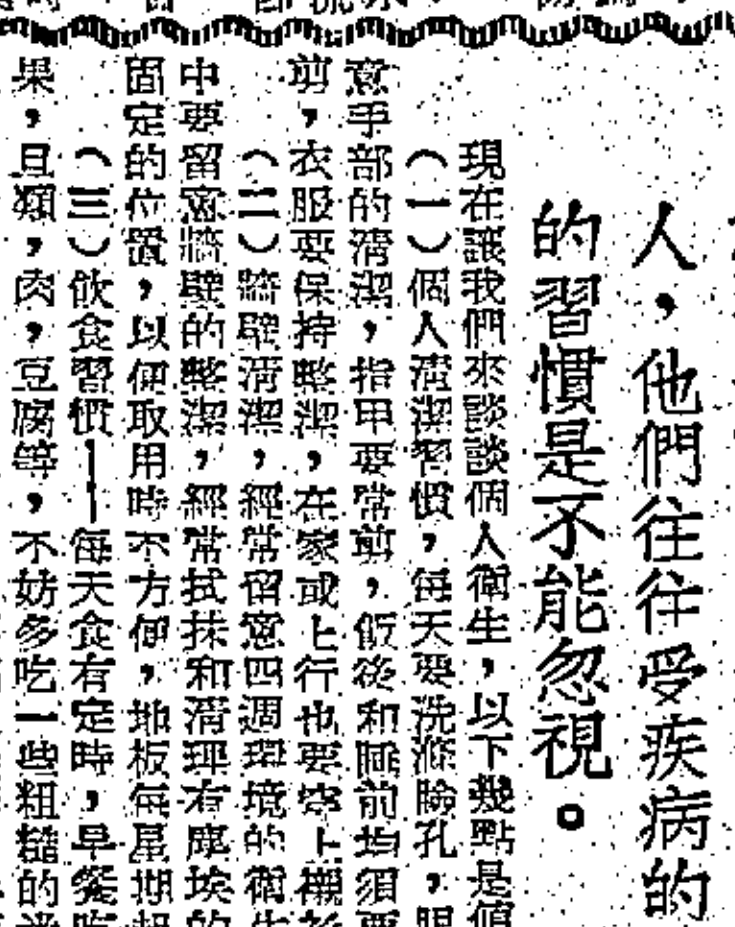 人，他們往往受疾病的
的習慣是不能忽視。
現在讓我們來談談個人衛生，以下幾點是値
（一）個人清潔習慣，每天要洗滌臉孔，眼
意手部的清潔，指甲要常剪，飯後和睡前均須要
剪，衣服要保持整潔，在家或上行也要穿上襯衫
（二）牆壁清潔，經常留意四週環境的衛生
中要留意牆壁的整潔，經常拭抹和清理有塵埃的
固定的位置，以便取用時不方便，地板每星期
（三）飲食習慣——每天食有定時，早餐吃
果，豆類，肉，豆腐等，不妨多吃一些粗糙的